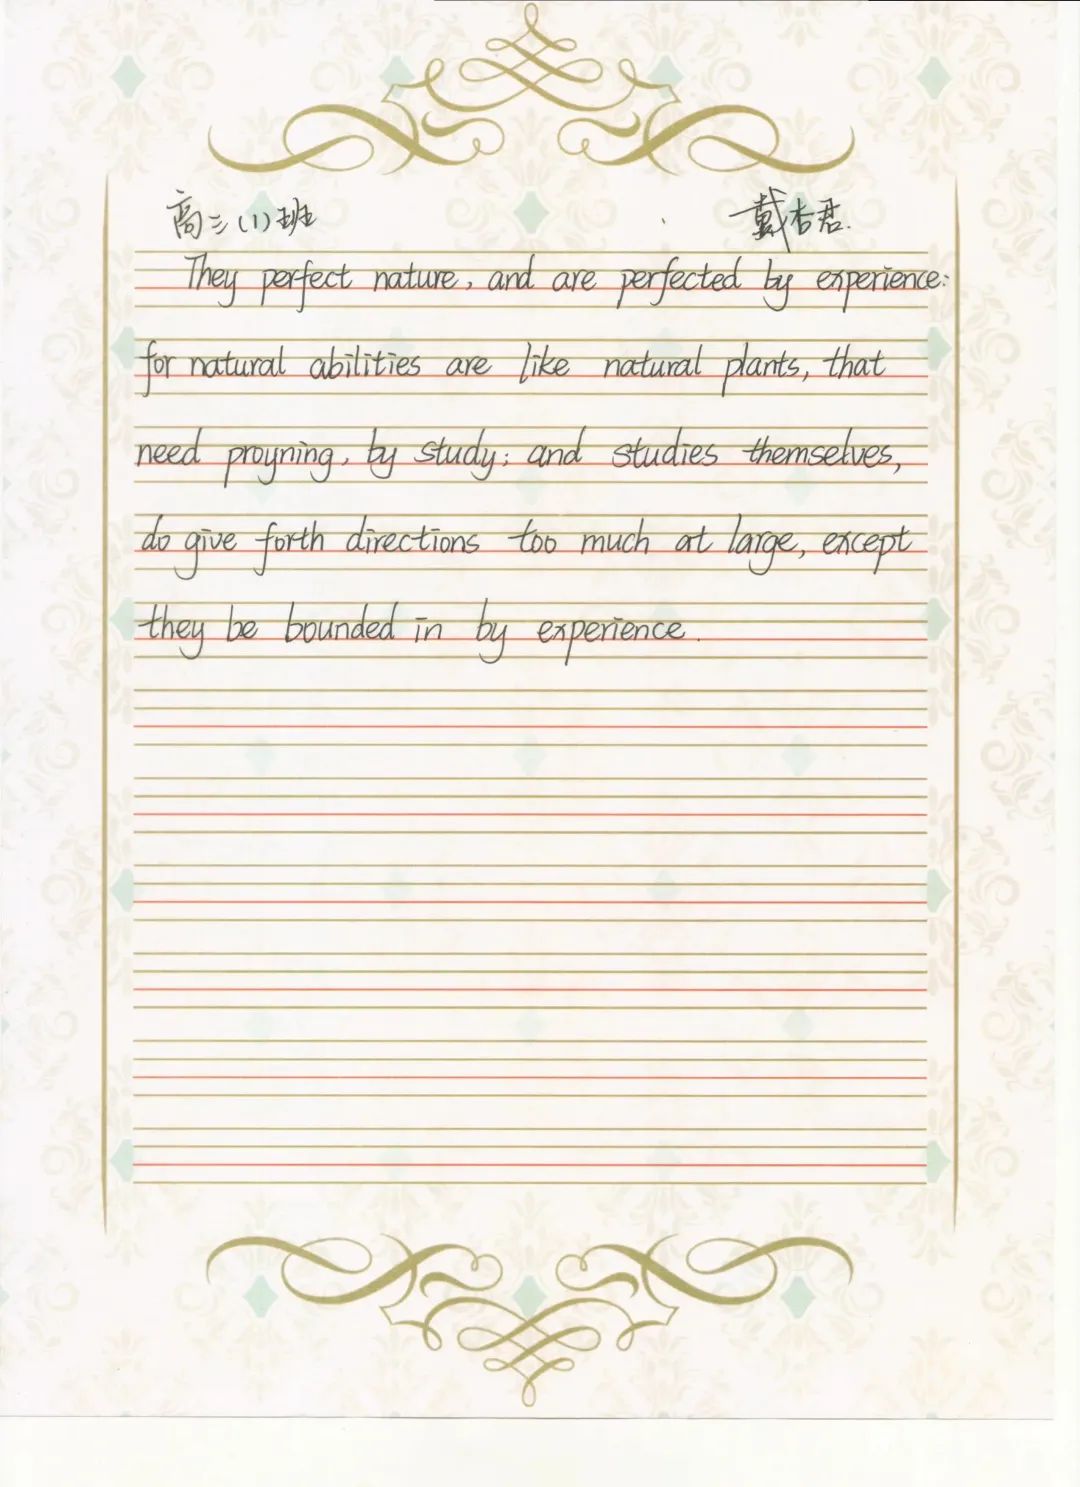 高三(1)班 戴杏君.
They perfect nature, and are perfected by experience:
for natural abilities are like natural plants, that
need proyning, by study; and studies themselves,
do give forth directions too much at large, except
they be bounded in by experience.